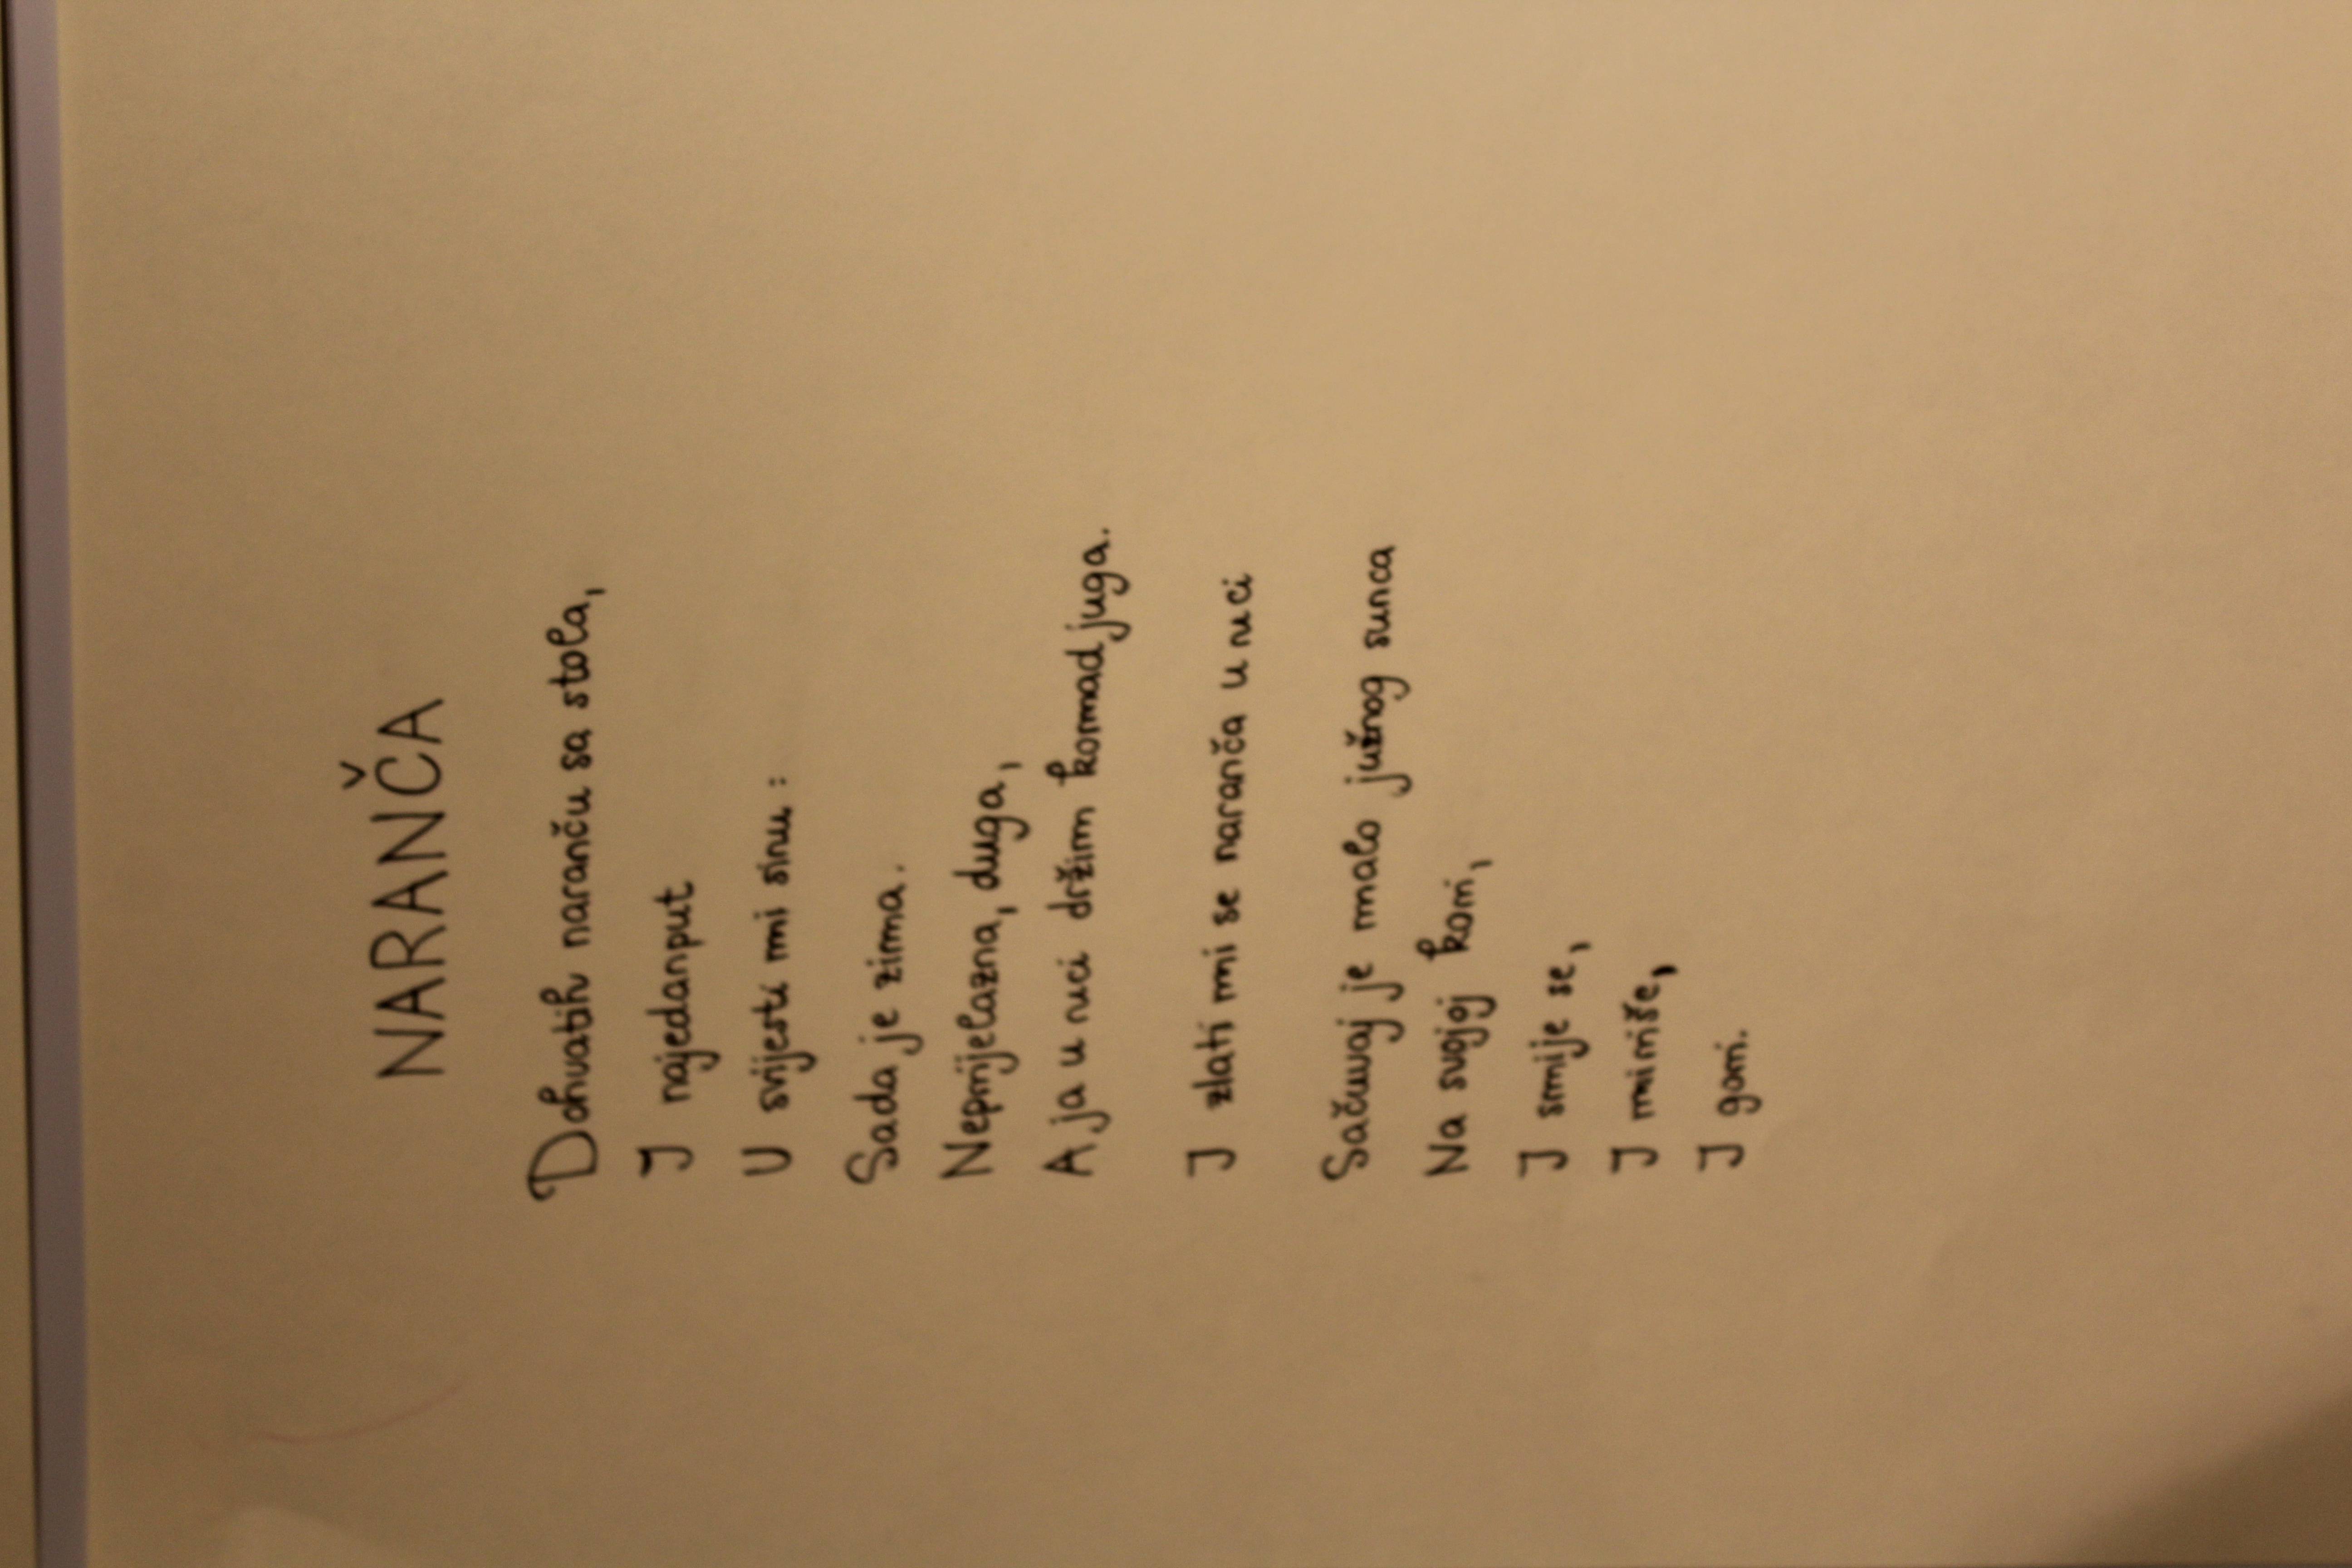 NARANČA
Dohvatih naranču sa stola,
I najedanput
U svijesti mi sinu:
Sada je zima.
Neprijelazna, duga,
A ja u ruci držim komad juga.
I zlati mi se naranča u ruci
Sačuvaj je malo južnog sunca
Na svojoj kori,
I smije se,
I miriše,
I gori.